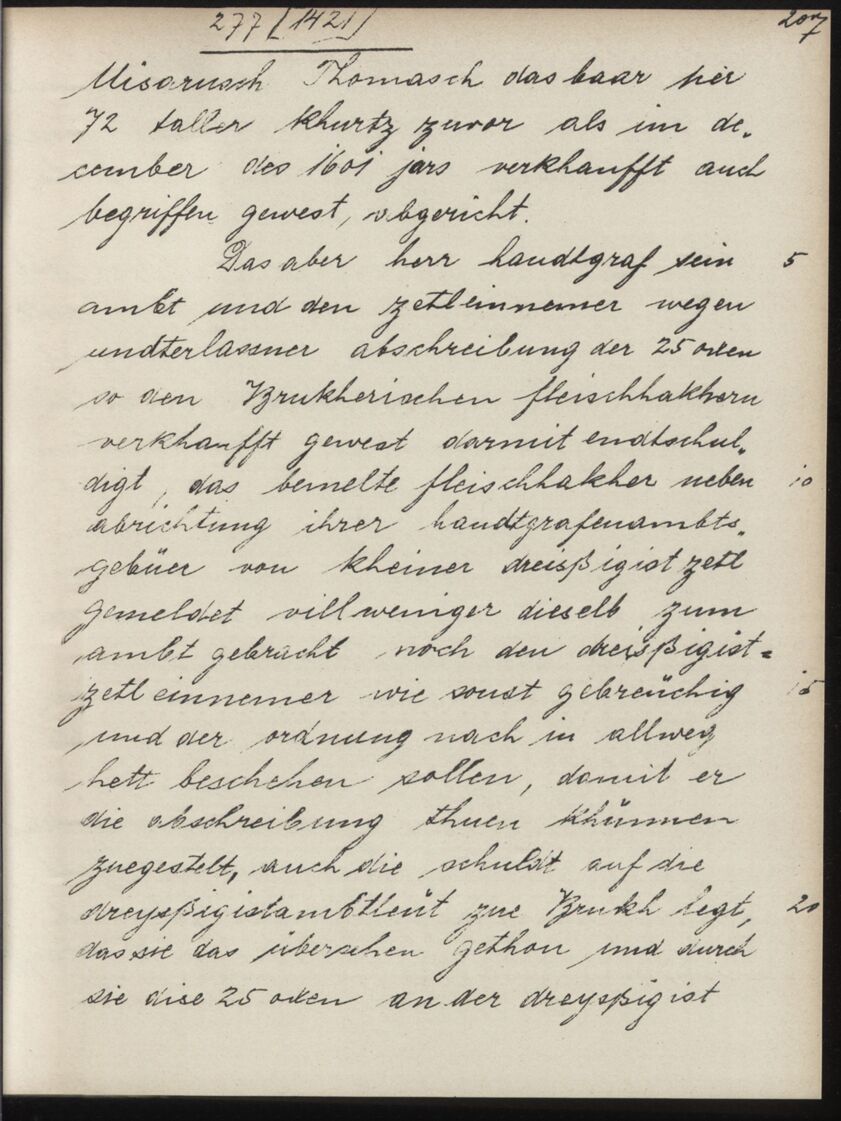 277 [1421]
207
Misarusch Thomasch das baar hier
72 taller khurtz zuvor als im de„
cember des 1601 jars verkhaufft auch
begriffen gewest, abgericht.
Das aber herr handtgraf sein 5
ambt und den zetleinnemer wegen
undterlassner abschreibung der 25 oxen
so den Brukherischen fleischhakhern
verkhaufft gewest darmit endtschul„
digt, das bemelte fleischhakher neben 10
abrichtung ihrer handtgrafenambts„
gebüer von kheiner dreisßigist zetl
gemeldet vill weniger dieselb zum
ambt gebracht noch den dreisßigist=
zetl einnemer wie sonst gebreüchig 15
und der ordnung nach in allweg
hett beschehen sollen, damit er
die abschreibung thuen khünnen
zuegestelt, auch die schuldt auf die
dreysßigistambtleüt zue Brukh legt, 20
das sie das übersehen gethon und durch
sie dise 25 oxen an der dreysßigist